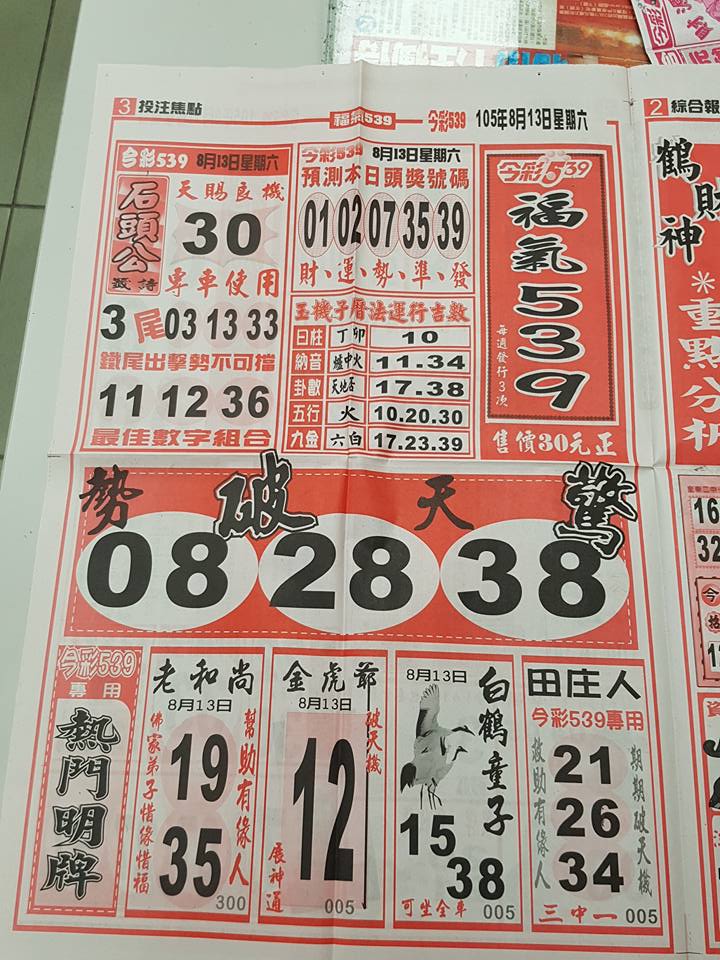 3 投注焦點
福氣539
今彩539 105年8月13日星期六
今彩539 8月13日星期六
石頭公
天賜良機
30
專車使用
3尾 03 13 33
鐵尾出擊勢不可擋
11 12 36
最佳數字組合
今彩539 8月13日星期六
預測本日頭獎號碼
01 02 07 35 39
財、運、勢、準、發
玉機子曆法運行吉數
日柱 丁卯 10
納音 爐中火 11.34
卦數 天地否 17.38
五行 火 10.20.30
九金 六白 17.23.39
今彩539
福氣539
每週發行3次
售價30元正
勢破天驚
08 28 38
今彩539
專用
熱門明牌
老和尚
8月13日
佛家弟子惜緣惜福
19
35
幫助有緣人
300
金虎爺
8月13日
破天機
12
展神通
005
8月13日
白鶴童子
15
38
可坐全車 005
田庄人
今彩539專用
救助有緣人
21
26
34
期期破天機
三中一 005
2 綜合報
鶴財神
*重點分析
16
32